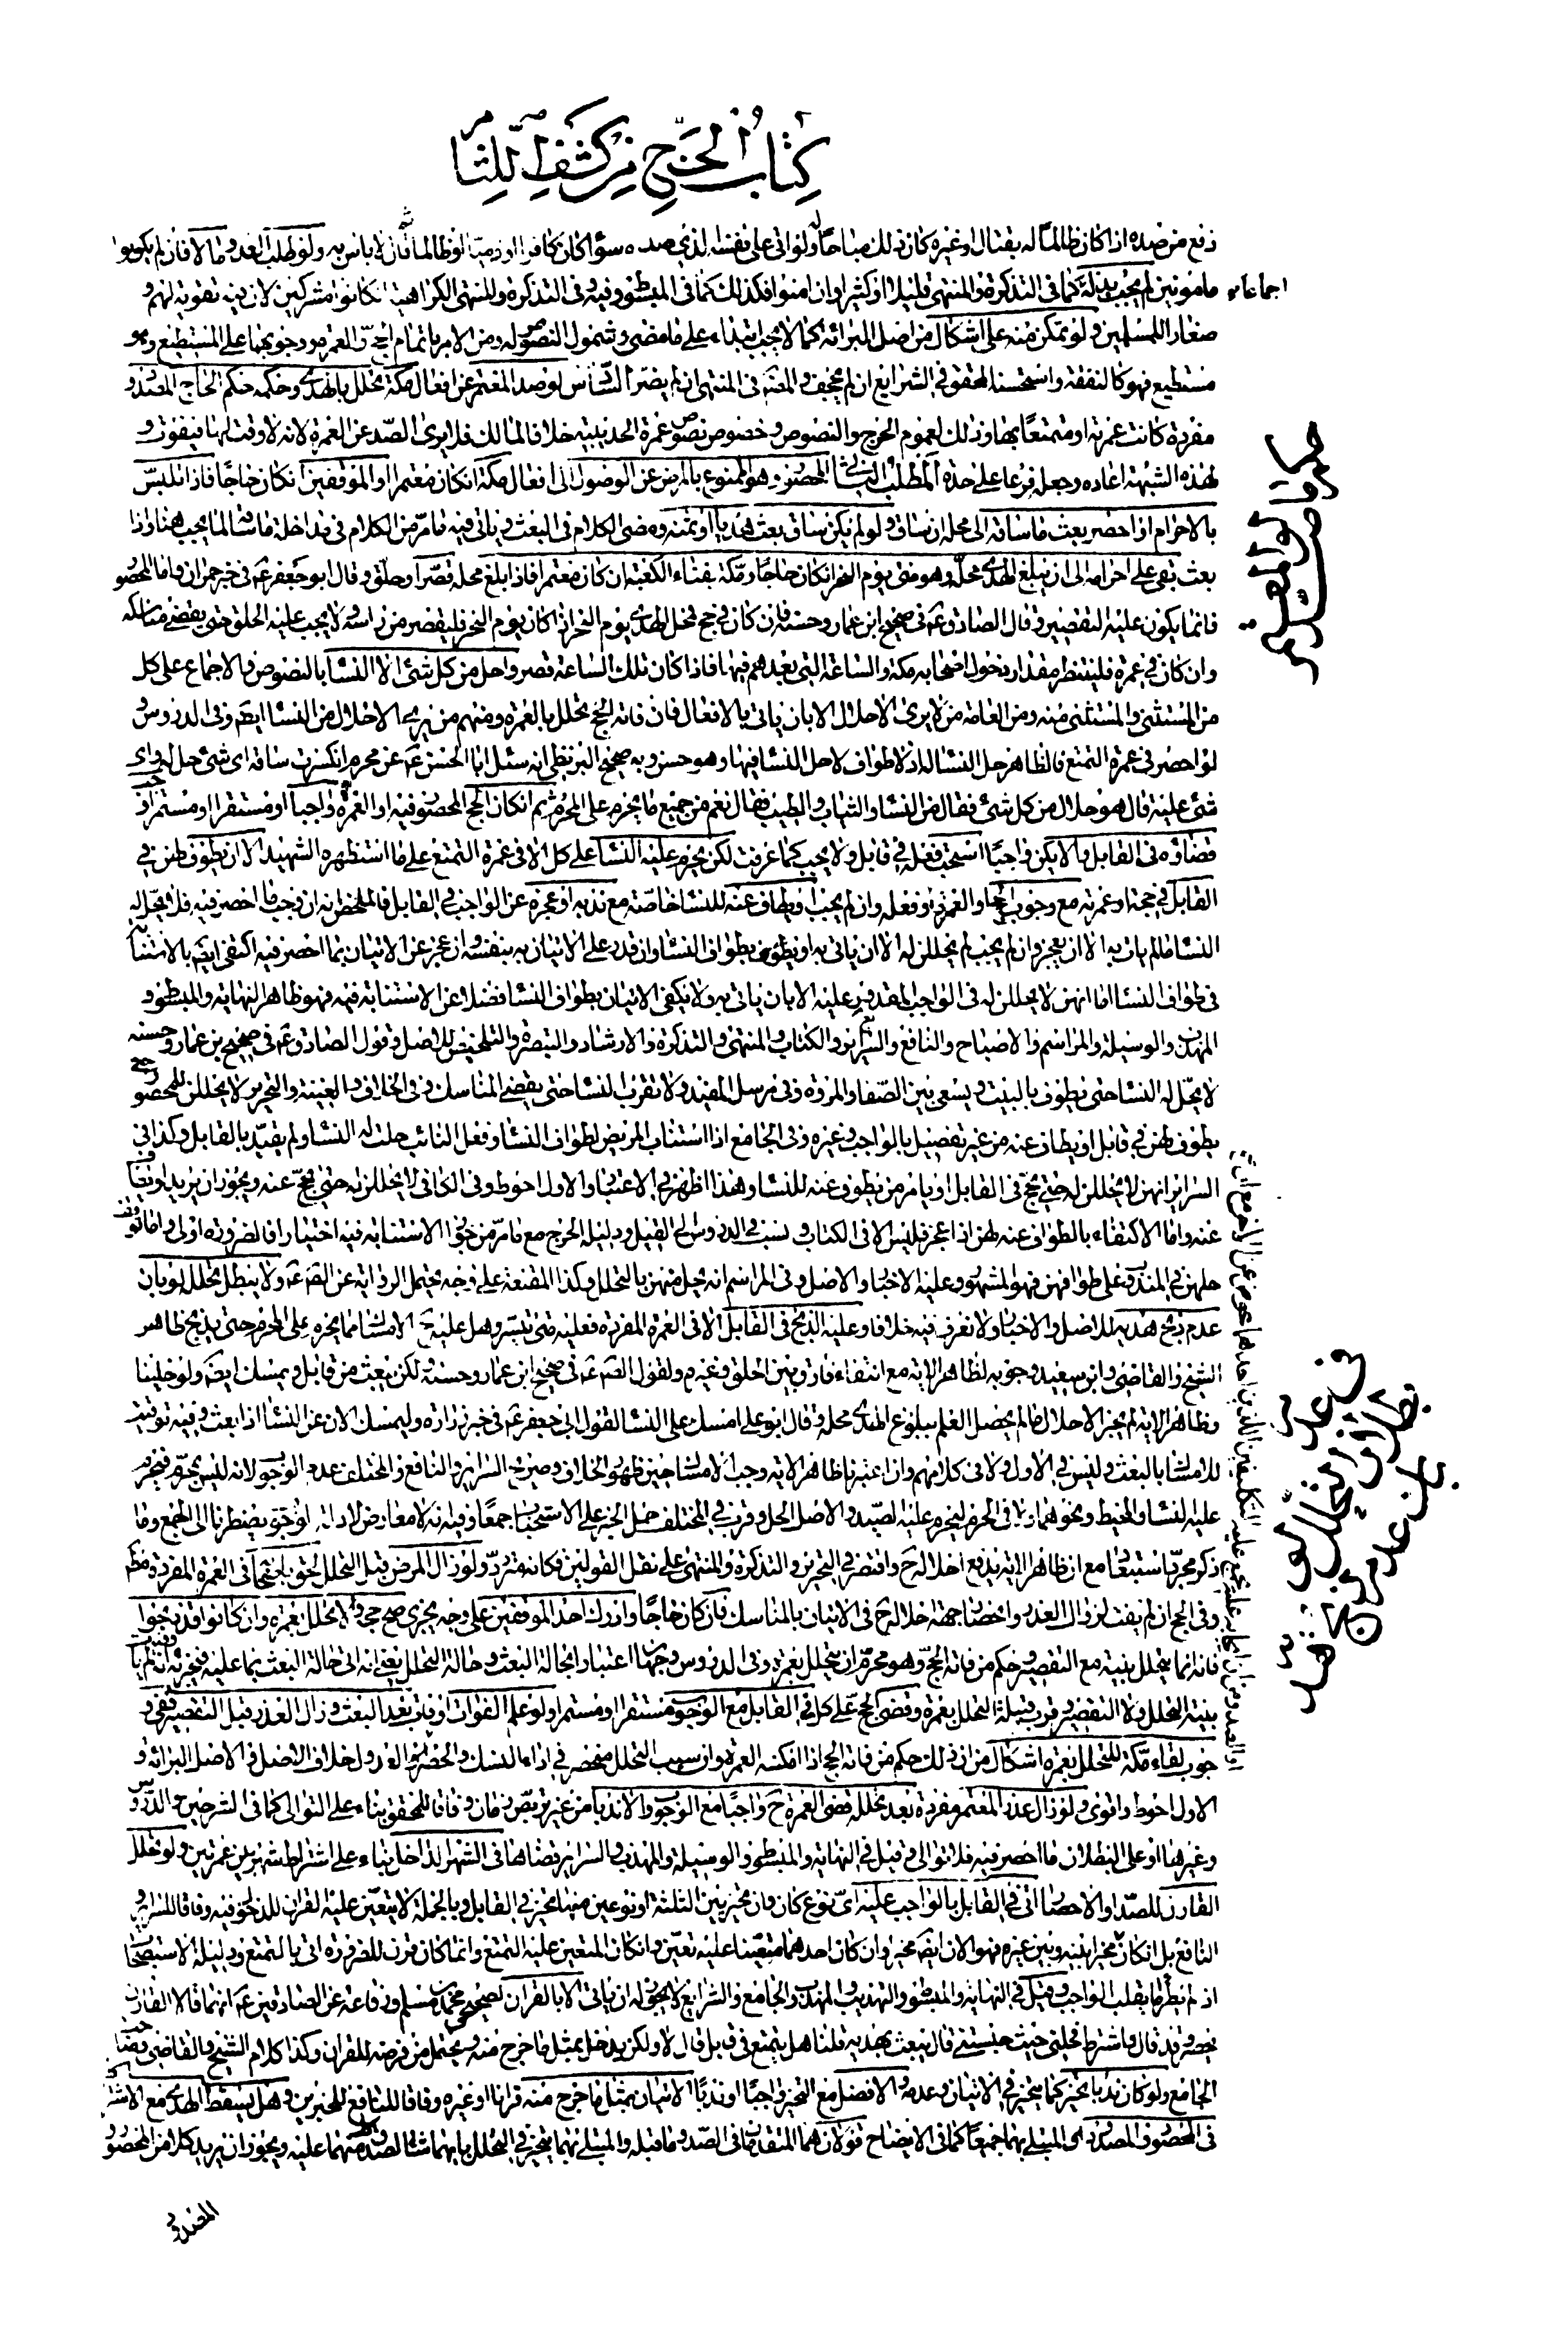 كتاب الحج من كشف اللثام
دفع من صده اذا كان ظالما له بقتال او غيره كان ذلك مباحا له ولو اتى على نفسه الذي صده سواء كان كافرا او ذميا او ظالما لا باس به ولو طلب العدو مالا فان لم يكونوا
مامونين لم يجب بذله كما في التذكرة والمنتهى قليلا او كثيرا وان امنوا فكذلك كما في المبسوط وفيه وفي التذكرة والمنتهى الكراهية ان كانوا مشركين لان فيه تقوية لهم و
صغار المسلمين ولو تمكن منه على اشكال من اصل البرائة كما لا يجب ابتداء على ما مضى وشمول النصوص له ومن الامر باتمام الحج والعمرة ووجوبهما على المستطيع وهو
مستطيع فهو كالنفقة واستحسنه المحقق في الشرايع ان لم يجحف والمصنف في المنتهى ان لم يضر السادس لو صد المعتمر عن افعال مكة تحلل بالهدي وحكمه حكم الحاج المصدود
مفردة كانت عمرته او متمتعا بها وذلك لعموم الحرج والنصوص وخصوص نصوص عمرة الحديبية خلافا لمالك فلا يرى الصد عن العمرة لانه لا وقت لها فيفوت و
لهذه الشبهة اعاده وجعله فرعا على حدة المطلب الثاني المحصور وهو الممنوع بالمرض عن الوصول الى افعال مكة ان كان معتمرا او الموقفين ان كان حاجا فاذا تلبس
بالاحرام اذا احضر بعث ما ساقه الى محله ان ساق ولو لم يكن ساق بعث هديا او ثمنه ومضى الكلام في البعث وياتي فيه ما مر من الكلام في تداخل ما ساقه لما يجب هنا واذا
بعث بقي على احرامه الى ان يبلغ الهدي محله وهو منى يوم النحر ان كان حاجا ومكة بفناء الكعبة ان كان معتمرا فاذا بلغ محله قصر او حلق وقال ابو جعفر ع في خبر حمران واما المحصور
فانما يكون عليه التقصير وقال الصادق ع في صحيح ابن عمار وحسنه فان كان في حج فمحل الهدي يوم النحر اذا كان يوم النحر فليقصر من راسه ولا يجب عليه الحلق حتى يقضي مناسكه
وان كان في عمرة فلينتظر مقدار دخول اصحابه مكة والساعة التي يعدهم فيها فاذا كان تلك الساعة قصر واحل من كل شئ الا النساء بالنصوص والاجماع على كل
من المستثنى والمستثنى منه ومن العامة من لا يرى الاحلال الا بان ياتي بالافعال فان فاته الحج تحلل بالعمرة ومنهم من يرى الاحلال من النساء ايضا وفي الدروس و
لو احصر في عمرة التمتع فالظاهر حل النساء له اذ لا طواف لاحل النساء فيها وهو حسن وبه صحيح البزنطي انه سئل ابا الحسن ع عن محرم انكسرت ساقه اى شئ حل له واى
شئ عليه قال هو حلال من كل شئ فقال من النساء والثياب والطيب فقال نعم من جميع ما يحرم على المحرم ثم ان كان الحج المحصور فيه او العمرة واجبا او مستقرا او مستمرا وجب
قضاؤه في القابل والا يكن واجبا استحب فعله في قابل ولا يجب كما عرفت لكن يحرم عليه النساء على كل الا في عمرة التمتع على ما استظهره الشهيد الا ان يطوف لهن في
القابل في حجته او عمرته مع وجوب الحج او العمرة او فعله وان لم يجب او يطاف عنه للنساء خاصة مع ندبه او عجزه عن الواجب في القابل فالملخص انه ان وجب ما احصر فيه فلا يحل له
النساء ما لم يات به الا ان يعجز وان لم يجب لم يحللن له الا ان ياتي به او يطوف بطواف النساء وان قدر على الاتيان به بنفسه وان عجز عن الاتيان بما احصر فيه اكتفى ايضا بالاستنابة
في طواف النساء اما انهن لا يحللن له في الواجب المقدور عليه الا بان ياتي به ولا يكفي الاتيان بطواف النساء فضلا عن الاستنابة فيه فهو ظاهر النهاية والمبسوط و
المهذب والوسيلة والمراسم والاصباح والنافع والشرايع والكتاب والمنتهى والتذكرة والارشاد والتبصرة والتلخيص للاصل وقول الصادق ع في صحيح بن عمار وحسنه
لا يحل له النساء حتى يطوف بالبيت ويسعى بين الصفا والمروة وفي مرسل المفيد ولا تقرب النساء حتى يقضي المناسك وفي الخلاف والغنية والتحرير لا يحللن للمحصور حتى
يطوف لهن في قابل او يطاف عنه من غير تفصيل بالواجب وغيره وفي الجامع اذا استناب المريض لطواف النساء وفعل النائب حلت له النساء ولم يقيد بالقابل وكذا في
السرائر انهن لا يحللن له حتى يحج في القابل او يامر من يطوف عنه للنساء وهذا اظهر في الاعتبار والاول احوط وفي الكافي لا يحللن له حتى يحج او يحج عنه ويجوز ان يريد او يطاف
عنه واما الاكتفاء بالطواف عنه لهن اذا عجز فليس الا في الكتاب ونسب في الدروس الى القيل ودليله الحرج مع ما مر من جواز الاستنابة فيه اختيارا فالضرورة اولى واما توقف
حلهن في المندوب على طوافهن فهو المشهور وعليه الاخبار والاصل وفي المراسم انه يحل منهن بالتحلل وكذا المقنعة على وجه يحتمل الرواية عن الصادق ع ولا يبطل تحلله لو بان
عدم ذبح هديه للاصل والاخبار ولا نعرف فيه خلافا وعليه الذبح في القابل الا في العمرة المفردة فعليه متى تيسر وهل عليه ح الامساك عما يحرم على المحرم حتى يذبح ظاهر
الشيخ والقاضي وابن سعيد وجوبه لظاهر الاية مع انتفاء فارق بين الحلق وغيره ولقول الصادق ع في صحيح ابن عمار وحسنه ولكن يبعث من قابل ويمسك ايضا ولو خلينا
وظاهر الاية لم يجز الاحلال ما لم يحصل العلم ببلوغ الهدي محله وقال ابو علي امسك على النساء لقول ابي جعفر ع في خبر زرارة وليمسك الان عن النساء اذا بعث وفيه توقيت
للامساك بالبعث وليس في الاول ولا في كلامهم وان اعتبرنا ظاهر الاية وجب الامساك حين ظهور الخلاف وصريح السرائر والنافع والمختلف عدم الوجوب لانه ليس بمحرم فيحرم
عليه النساء والمخيط ونحوهما ولا في الحرم ليحرم عليه الصيد والاصل الحل وقرب في المختلف حمل الخبر على الاستحباب جمعا وفيه انه لا معارض لادلة الوجوب يضطرنا الى الجمع وما
ذكر مجرد استبعاد مع ان ظاهر الاية يدفع احلاله ح واقتصر في التحرير والتذكرة والمنتهى على نقل القولين فكانه متردد ولو زال المرض قبل التحلل لحق باصحابه في العمرة المفردة مطلقا
وفي الحج ان لم يفت لزوال العذر وانحصار جهة احلاله ح في الاتيان بالمناسك فان كان حاجا وادرك احد الموقفين على وجه يجزي صح حجه والا تحلل بعمرة وان كانوا قد ذبحوا
فانه انما يتحلل بنيته مع التقصير وحكم من فاته الحج وهو محرم ان يتحلل بعمرة وفي الدروس وجهان اعتبارا بحالة البعث وحالة التحلل يعني انه الى حالة البعث بما عليه فيجزئه ان لم يات
بنية التحلل ولا التقصير وقرب قبيلة التحلل بعمرة وقضى الحج على كل في القابل مع الوجوب مستقرا او مستمرا ولو علم الفوات او فات بعد البعث وزال العذر قبل التقصير ففي و
جوب لقاء مكة للتحلل بعمرة اشكال من ان ذلك حكم من فاته الحج اذا امكنه العمرة وان سبب التحلل منحصر في اداء النسك والحصر او العدول خلاف الاصل والاصل البرائة و
الاول احوط واقوى ولو زال عذر المعتمر مفردة بعد تحلله قضى العمرة ح واجبا مع الوجوب والا ندبا من غير تربص زمان وفاقا للمحقق بناء على التوالي كما في الشرحين والدروس
وغيرها او على البطلان ما احصر فيه فلا توالى وقيل في النهاية والمبسوط والوسيلة والمهذب والسرائر قضاها في الشهر الداخل بناء على اشتراط شهر بين عمرتين ولو تحلل
القارن للصد او الاحصار اتى في القابل بالواجب عليه اى نوع كان وان تخير بين الثلثة او نوعين منها تخير في القابل وبالجملة لا يتعين عليه القران للدخول فيه وفاقا للسرائر و
النافع بل ان كان مخيرا بينه وبين غيره فهو الان ايضا مخير وان كان احدهما متعينا عليه تعين وان كان المتعين عليه التمتع وانما كان قرن للضرورة اتى بالتمتع ودليله الاستصحاب
اذ لم يطرء ما يقلب الواجب وقيل في النهاية والمبسوط والتهذيب والمهذب والجامع والشرايع لا يجوز له ان ياتي الا بالقران لصحيحي محمد بن مسلم ورفاعة عن الصادقين ع انهما قالا القارن
يحصر وقد قال واشترط فحلني حيث حبستني قال يبعث بهديه قلنا هل يتمتع في قابل قال لا ولكن يدخل بمثل ما خرج منه ويحتمل من فرضه القران وكذا كلام الشيخ والقاضي وصاحب
الجامع ولو كان ندبا تخير كما يتخير في الاتيان وعدمه والافضل مع التخير واجبا او ندبا الاتيان بمثل ما خرج منه قرانا او غيره وفاقا للنافع للخبرين وهل يسقط الهدي مع الاشتراط
في المحصور والمصدود اى المبتلى بهما جميعا كما في الايضاح قولان هما المتقدمان في الصد وما قبله والمبتلى بهما يتخير في التحلل بايهما شاء لصدق كل منهما عليه ويجوز ان يريد كلا من المحصور و
المصدود
اجماعا
حكم ما لو صد المعتمر